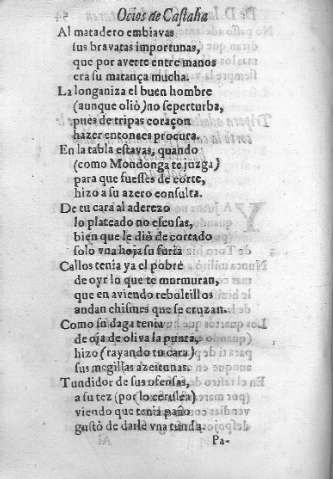 Ocios de Castalia
Al matadero embiavas
sus bravatas importunas,
que por averte entre manos
era su matança mucha.
La longaniza el buen hombre
(aunque oliò) no se perturba,
pues de tripas coraçon
hazer entonces procura.
En la tabla estavas, quando
(como Mondonga te juzga)
para que fuesses de corte,
hizo a su azero consulta.
De tu cara al aderezo
lo plateado no escusas,
bien que le diò de cortado
solo vna hoja su furia
Callos tenia ya el pobre
de oyr lo que te murmuran,
que en aviendo reboltillos
andan chismes que se cruzan.
Como su daga tenta
de oja de oliva la punta,
hizo (rayando tu cara)
sus megillas azeitunas.
Tundidor de sus ofensas,
a su tez (por lo cerulea)
viendo que tenia paño
gustò de darle vna tunda.
Pa-